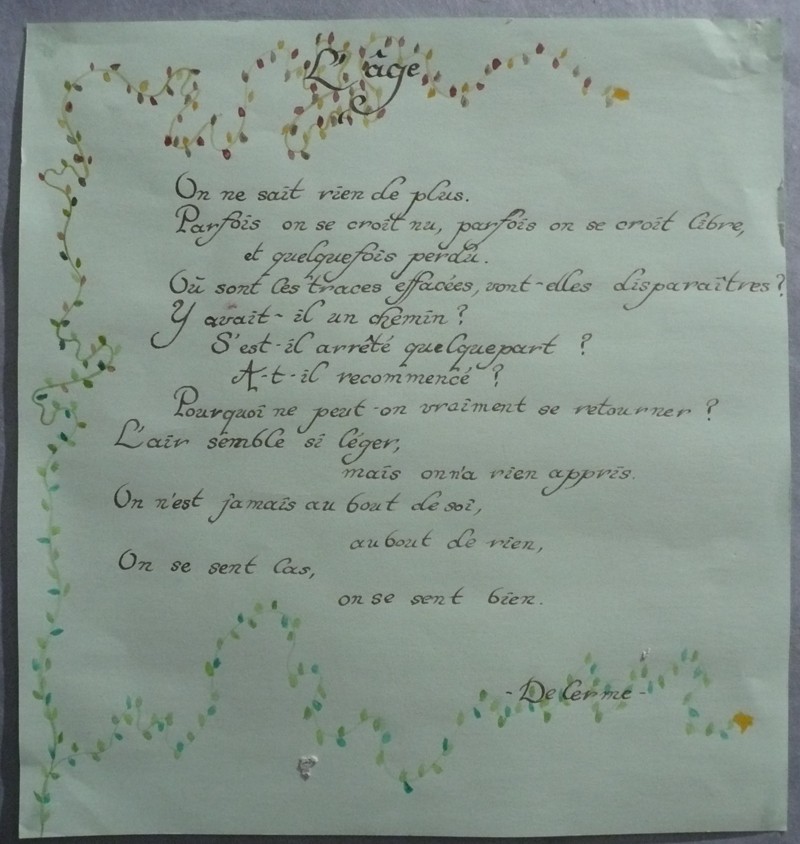 L'âge
On ne sait rien de plus.
Parfois on se croit nu, parfois on se croit libre,
et quelquefois perdu.
Où sont les traces effacées, vont-elles disparaîtres?
Y avait-il un chemin?
S'est-il arrêté quelquepart ?
A-t-il recommencé ?
Pourquoi ne peut-on vraiment se retourner ?
L'air semble si léger,
mais on n'a rien appris.
On n'est jamais au bout de soi,
au bout de rien,
On se sent las,
on se sent bien.
- De Lerme -